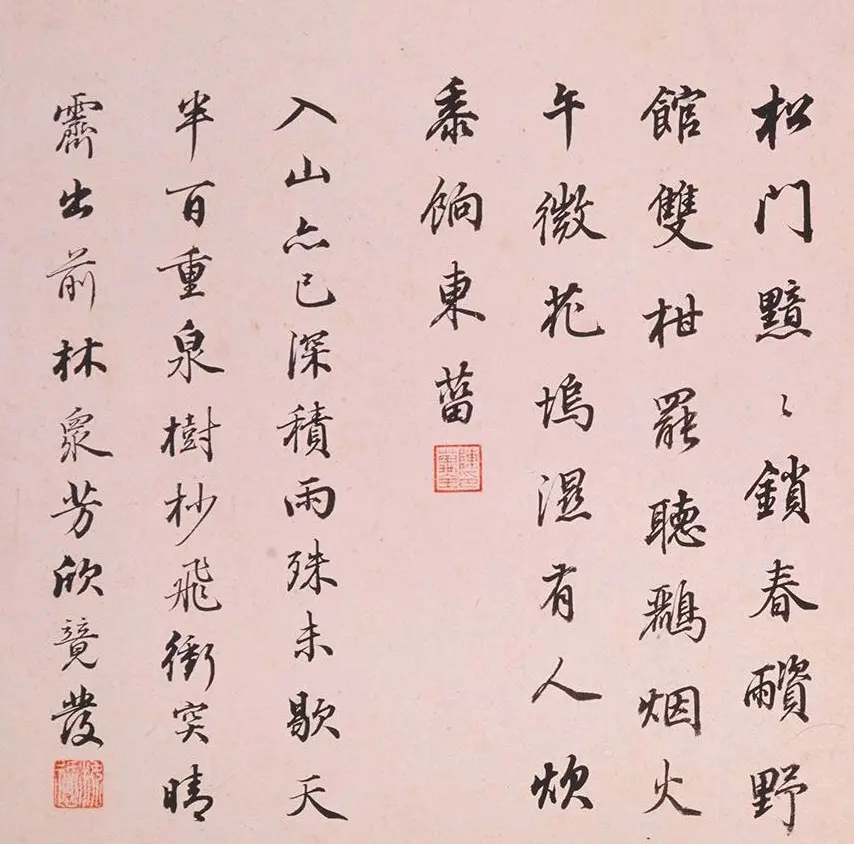 松門黯〻鎖春野
館雙柑罷聽鸝烟火
午微花塢濕有人炊
黍餉東菑
入山亦已深積雨殊未歇天
半百重泉樹杪飛衝突晴
霽出前林衆芳欣競發